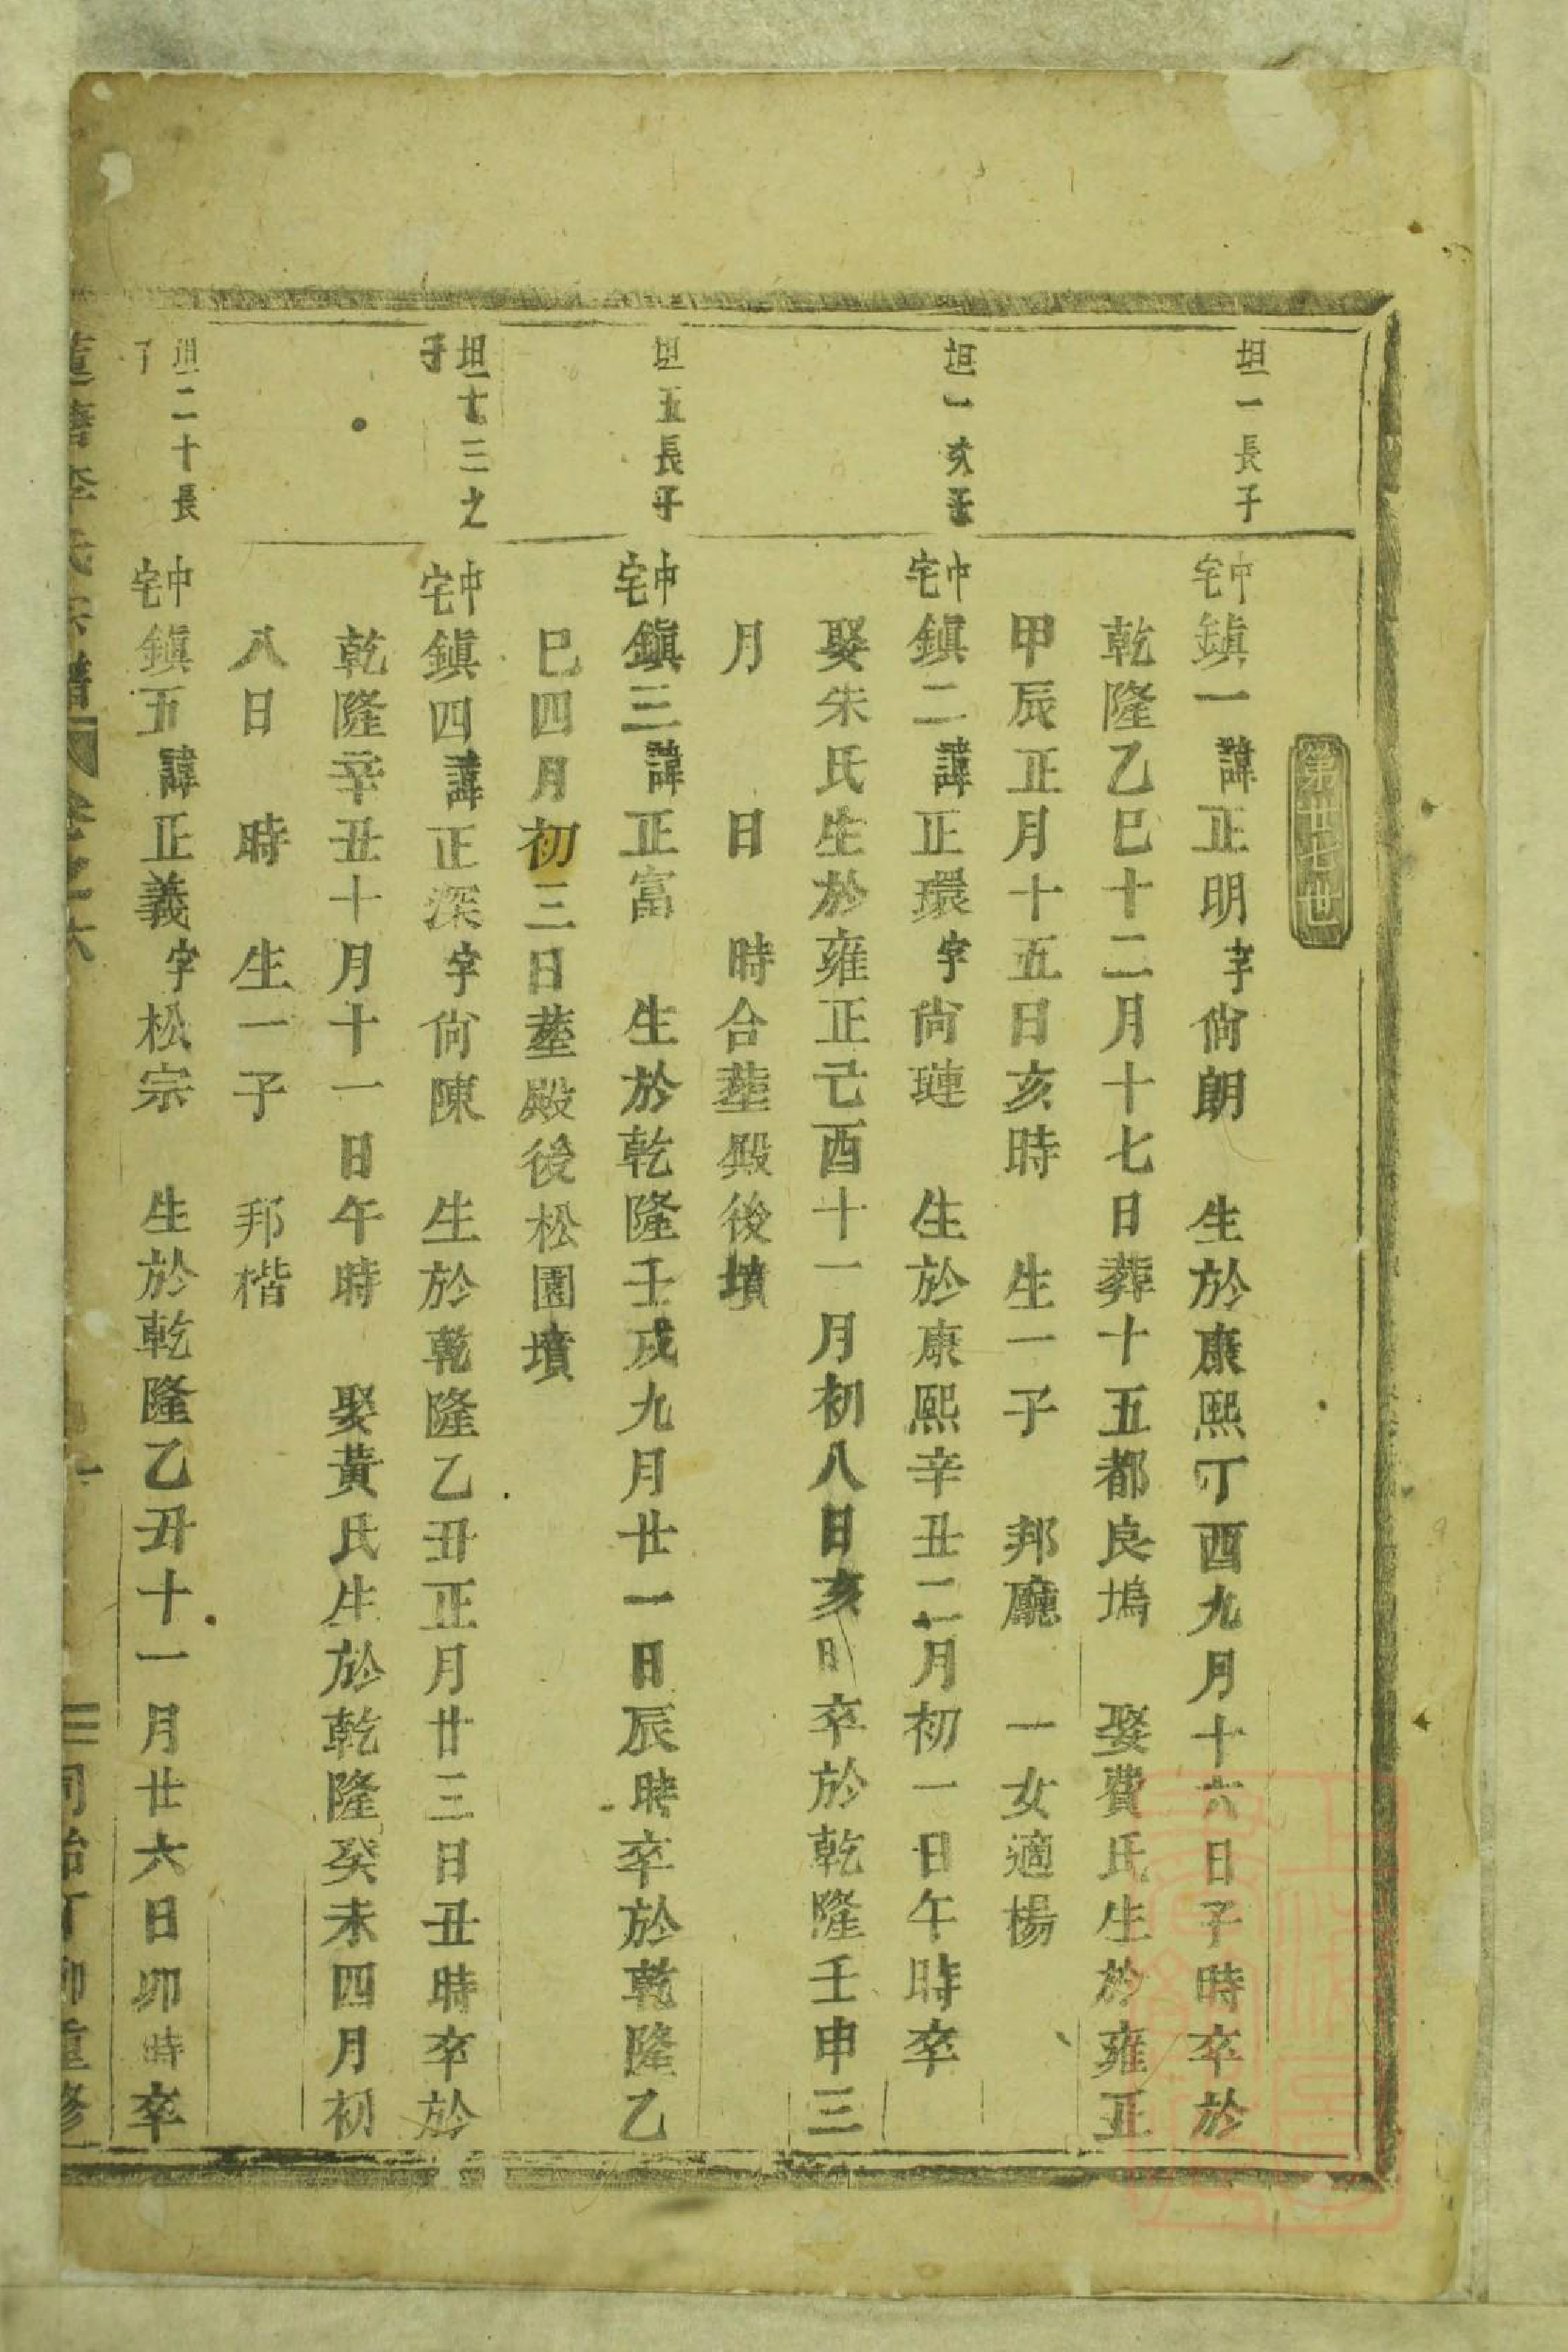 第卅七世
坦一長子
中宅鎮一諱正明字尙朗 生於康熙丁酉九月十六日子時卒於
乾隆乙巳十二月十七日葬十五都良塢 娶費氏生於雍正
甲辰正月十五日亥時 生一子 邦廳 一女適楊
坦一次子
中宅鎮二諱正環字尙璉 生於康熙辛丑二月初一日午時卒
娶朱氏生於雍正己酉十一月初八日亥時卒於乾隆壬申三
月 日 時合塟殿後墳
坦五長子
中宅鎮三諱正富 生於乾隆壬戌九月廿一日辰時卒於乾隆乙
巳四月初三日塟殿後松園墳
坦十三之子
中宅鎮四諱正深字尙陳 生於乾隆乙丑正月廿三日丑時卒於
乾隆辛丑十月十一日午時 娶黃氏生於乾隆癸未四月初
八日 時 生一子 邦楷
坦二十長子
中宅鎮五諱正義字松宗 生於乾隆乙丑十一月廿六日卯時卒
李氏宗譜 卷之六 一 同治丁卯重修